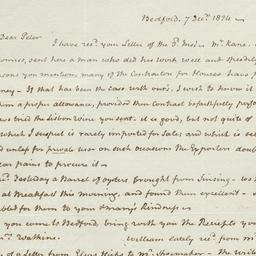 Bedford. 7 Decr. 1824
Dear Peter
I have recd. your Letter of the 5. Mr. Kane.
sent here a man who did his work well and speedily
you mention, many of the Contractors for Houses have
If that has been the Case with ours, I wish to know it
a proper allowance, provided their Contract be faithfully
tried the Lisbon wine you sent. it is good, but not quite of
which I suspect is rarely imported for Sale, and which is
unless for private use; on such occasions the Exporters
pains to procure it—
Yesterday a Barrel of oysters brought from Sinsing—
at Breakfast this morning, and found them excellent—
for them to your & Mary's Kindness
you come to Bedford, bring with you the Receipts
Mr. Watkins. William lately recd. from
of a Letter from Elias Hicks to Mr. Shoemaker— The